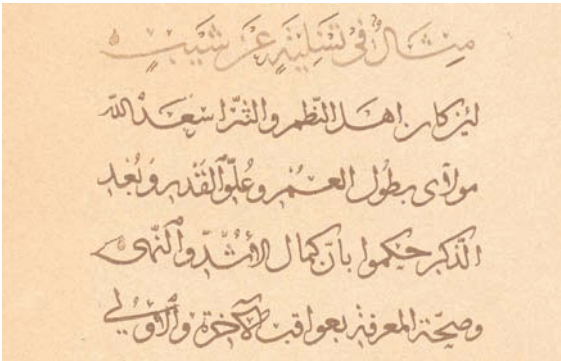 مِثَالٌ فِي تَسْلِيَةٍ عَنْ شَيْبٍ
لئن كان اهل النّظم والنثر اسْعَدَ الله
مولاى بطُول العُمْرِ وعُلُوّ القَدْرِ وَبُعْدِ
الذّكر حكموا بانّ كمال الأشُدّ والنُّهى
وصحّة المعرفة بعواقب الآخرة والأولى